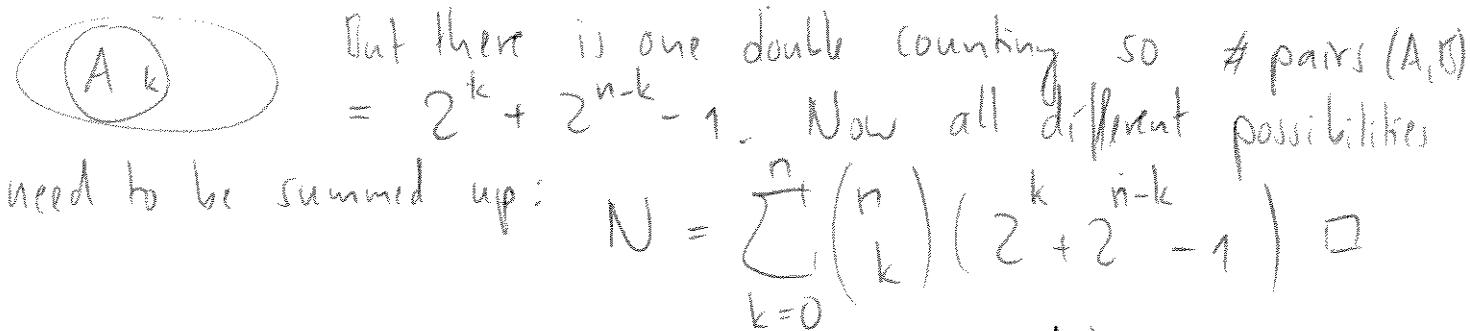 A k But there is one double counting so # pairs (A,B)
= 2^k + 2^{n-k} - 1. Now all different possibilities
need to be summed up: N = \sum_{k=0}^{n} \binom{n}{k} (2^k + 2^{n-k} - 1) □